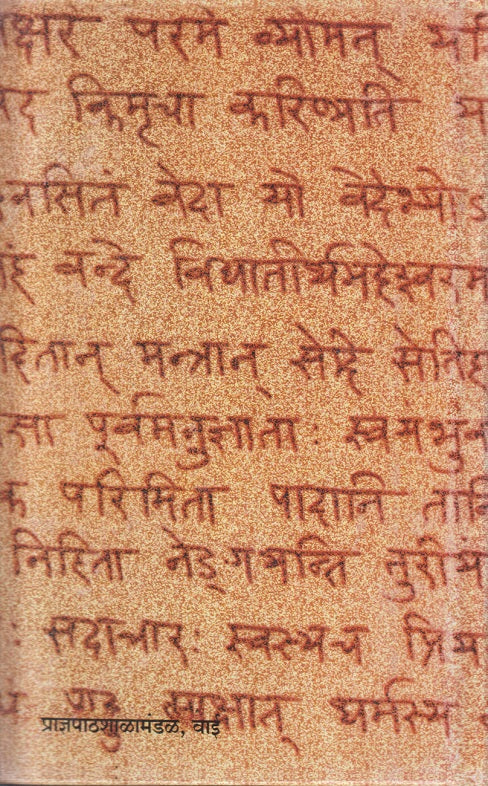 क्षरे परमे व्योमन् यस्
किमृचा करिष्यति य
निःश्वसितं वेदा यो वेदेभ्योऽ
वन्दे विद्यातीर्थमहेश्वरम
दितान् मन्त्रान् सेङ्गे सेतिहा
सा पूर्वमनुज्ञाताः स्वयंभुव
परिमिता पादानि तानि
निहिता नेङ्गयन्ति तुरीयं
सदाचारः स्वस्य च प्रिय
साक्षात् धर्मस्य
प्राज्ञपाठशाळामंडळ, वाई